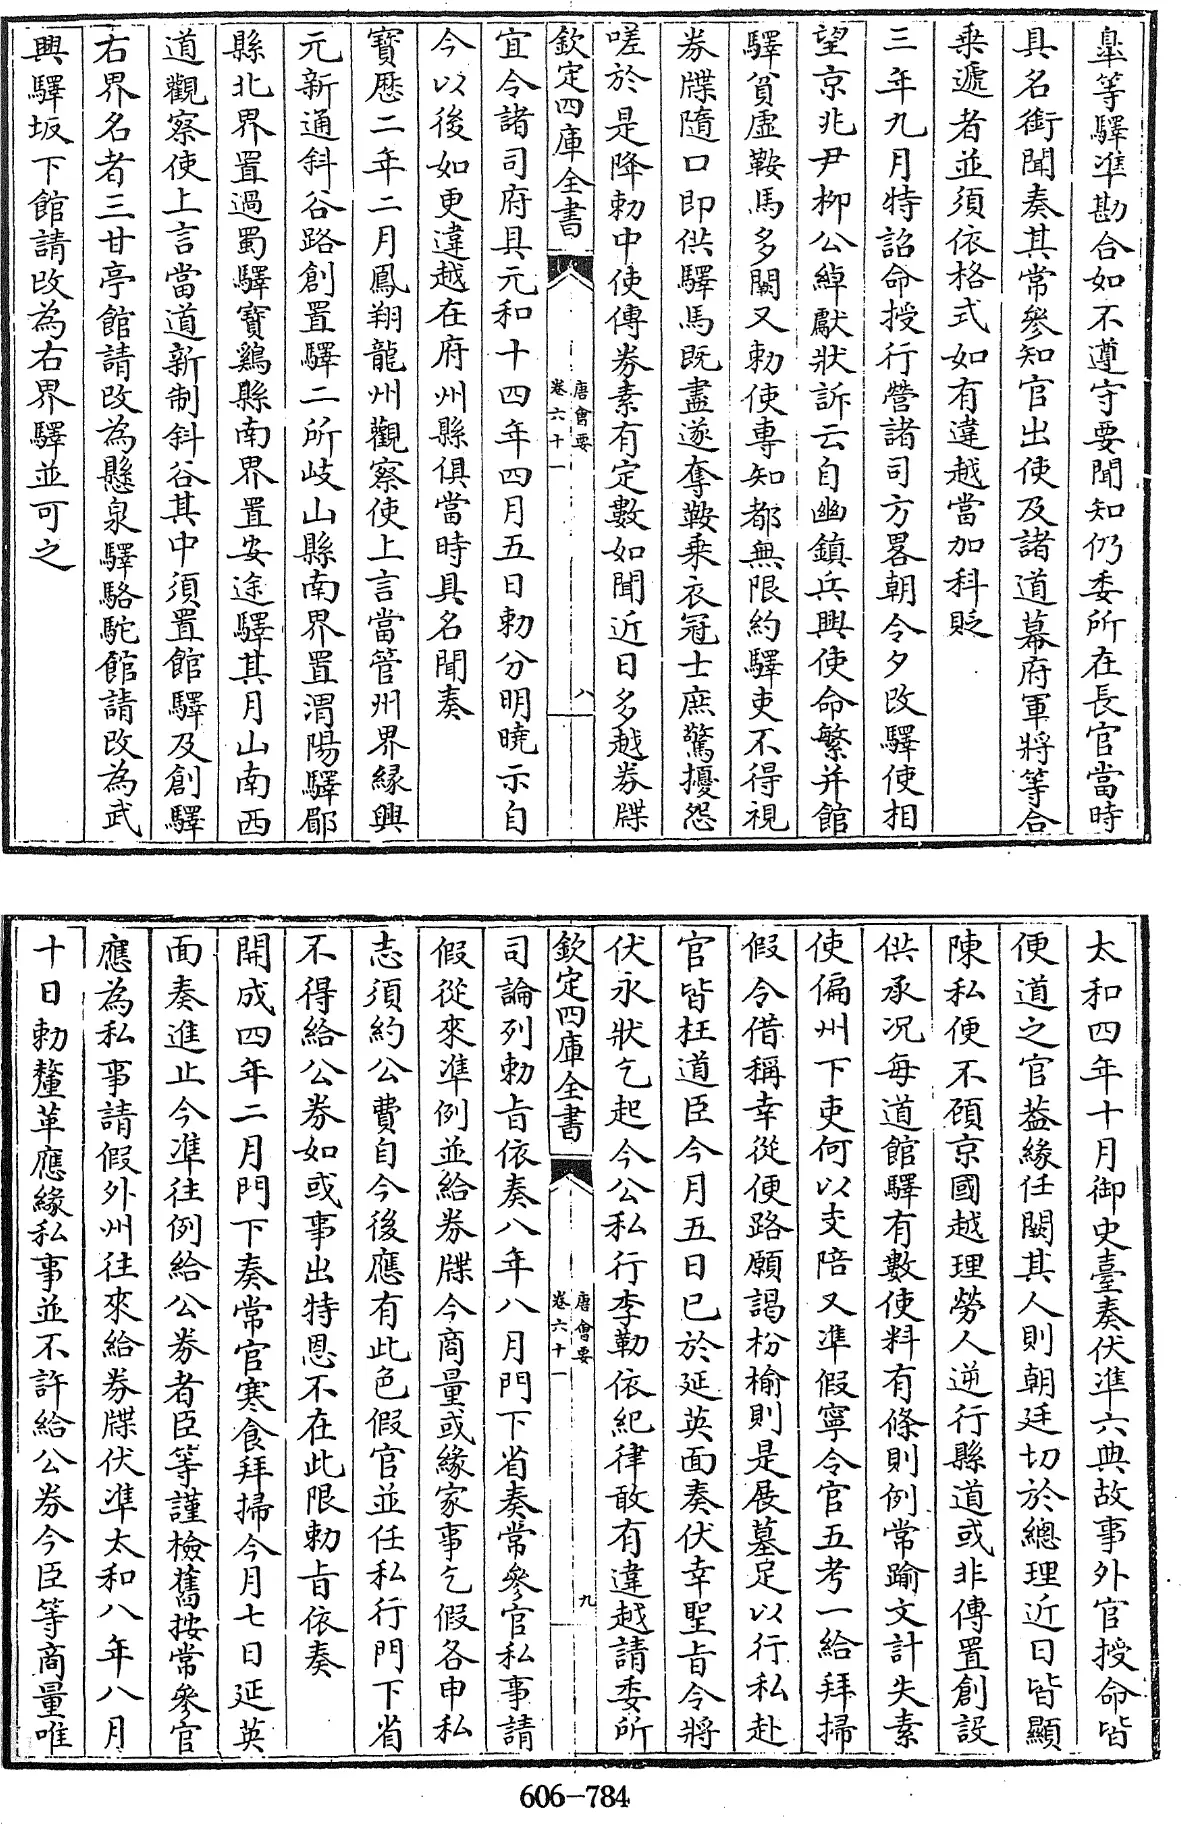 皐等驛準勘合如不遵守要聞知仍委所在長官當時
具名銜聞奏其常參知官出使及諸道幕府軍將等合
乗遞者並須依格式如有違越當加科貶
三年九月特詔命授行營諸司方畧朝令夕改驛使相
望京兆尹栁公綽獻狀訴云自幽鎮兵興使命繁并館
驛貧虛鞍馬多闕又勅使專知都無限約驛吏不得視
券牒隨口即供驛馬既盡遂奪鞍乗衣冠士庶驚擾怨
嗟於是降勅中使傳券素有定數如聞近日多越券牒
欽定四庫全書
唐會要
卷六十一
八
宜令諸司府具元和十四年四月五日勅分明曉示自
今以後如更違越在府州縣俱當時具名聞奏
寶歴二年二月鳳翔龍州觀察使上言當管州界縁興
元新通斜谷路創置驛二所岐山縣南界置渭陽驛郿
縣北界置過蜀驛寶鷄縣南界置安途驛其月山南西
道觀察使上言當道新制斜谷其中須置館驛及創驛
右界名者三甘亭館請改為懸泉驛駱駝館請改為武
興驛坂下館請改為右界驛並可之
太和四年十月御史臺奏伏準六典故事外官授命皆
便道之官葢緣任闕其人則朝廷切於總理近日皆顯
陳私便不顧京國越理勞人逆行縣道或非傳置創設
供承況每道館驛有數使料有條則例常踰文計失素
使偏州下吏何以支陪又準假寧令官五考一給拜掃
假令借稱幸從便路願謁枌榆則是展墓足以行私赴
官皆枉道臣今月五日已於延英面奏伏幸聖旨令將
伏永狀乞起今公私行李勒依紀律敢有違越請委所
欽定四庫全書
唐會要
卷六十一
九
司論列勅旨依奏八年八月門下省奏常參官私事請
假從來準例並給券牒今商量或緣家事乞假各申私
志須約公費自今後應有此色假官並任私行門下省
不得給公券如或事出特恩不在此限勅旨依奏
開成四年二月門下奏常官寒食拜掃今月七日延英
面奏進止今準往例給公券者臣等謹檢舊按常參官
應為私事請假外州往來給券牒伏準太和八年八月
十日勅釐革應緣私事並不許給公券今臣等商量唯
606-784